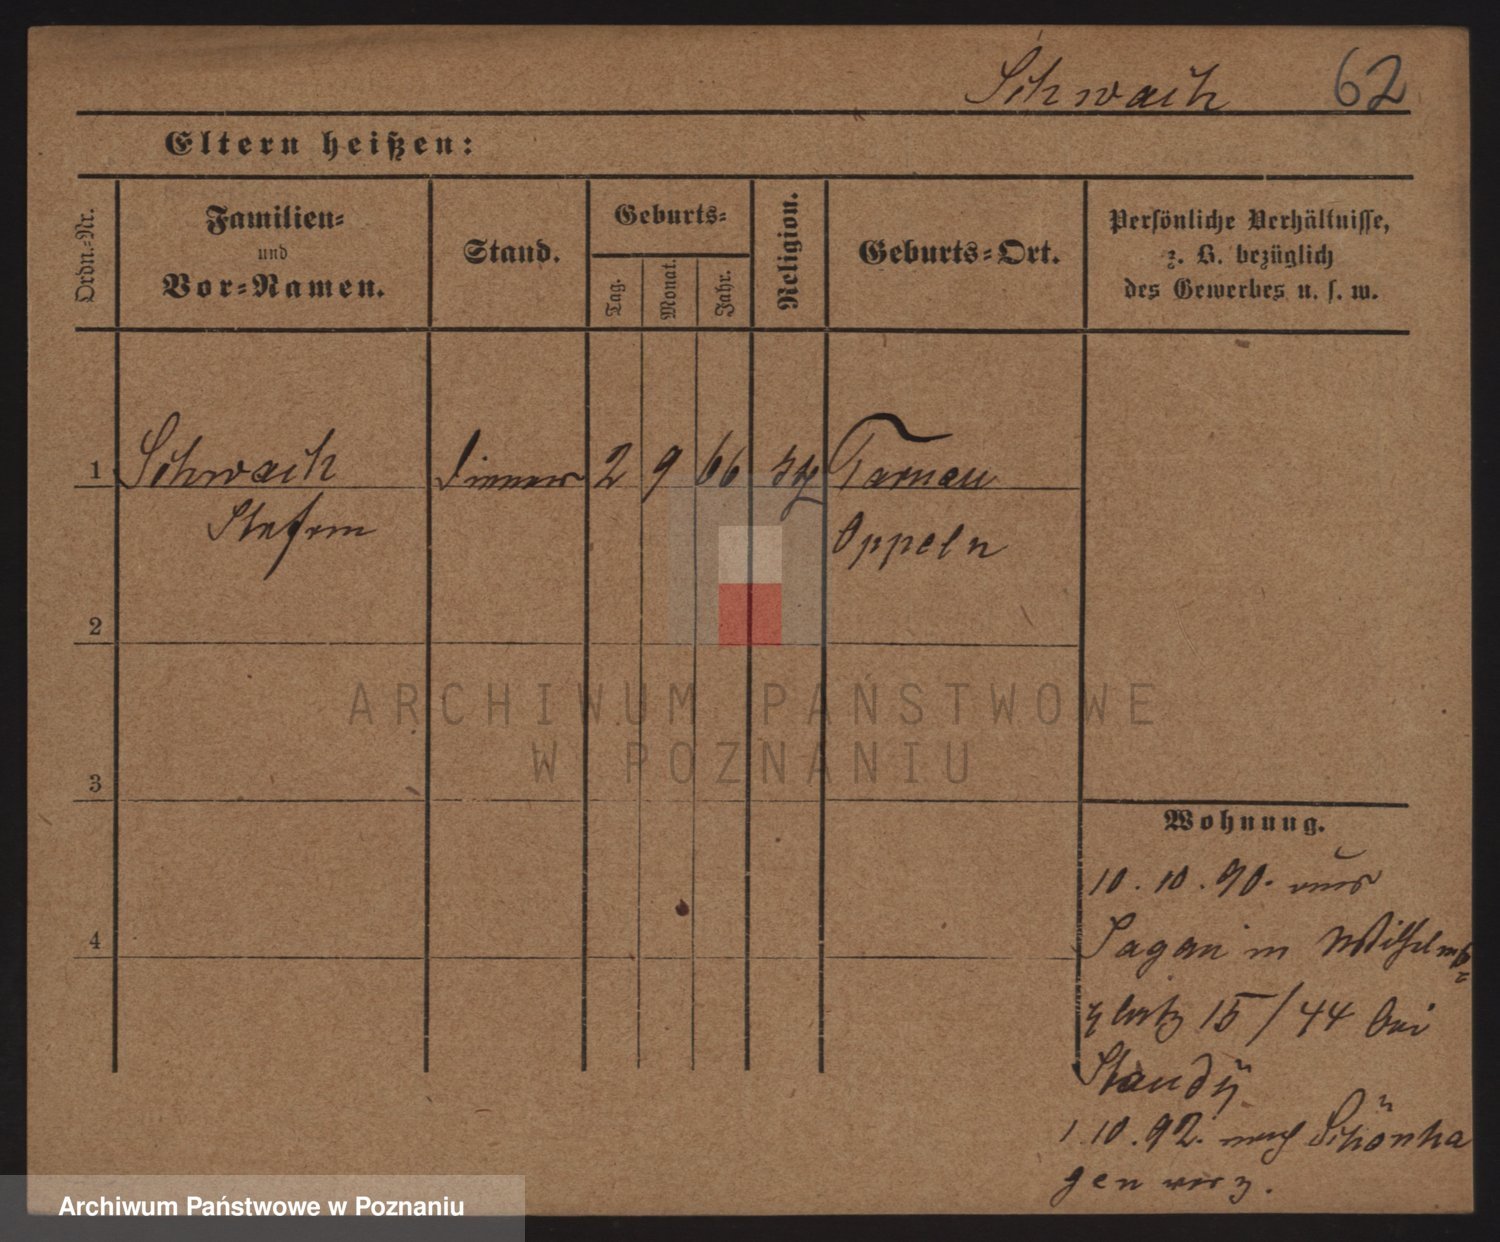 Schwach 62
Eltern heißen:
Ordn.-Nr.
Familien-
und
Vor-Namen.
Stand.
Geburts-
Tag.
Monat.
Jahr.
Religion.
Geburts-Ort.
Persönliche Verhältnisse,
z. B. bezüglich
des Gewerbes u. s. w.
1 Schwach Diener 2 9 66 Tarnau
Stefan Oppeln
2
3
4
ARCHIWUM PAŃSTWOWE
W POZNANIU
Wohnung.
10. 10. 90. aus
Sagan in Wilhelms-
platz 15/44 bei
Staudy
1. 10. 92. nach Schönha
gen verz.
Archiwum Państwowe w Poznaniu